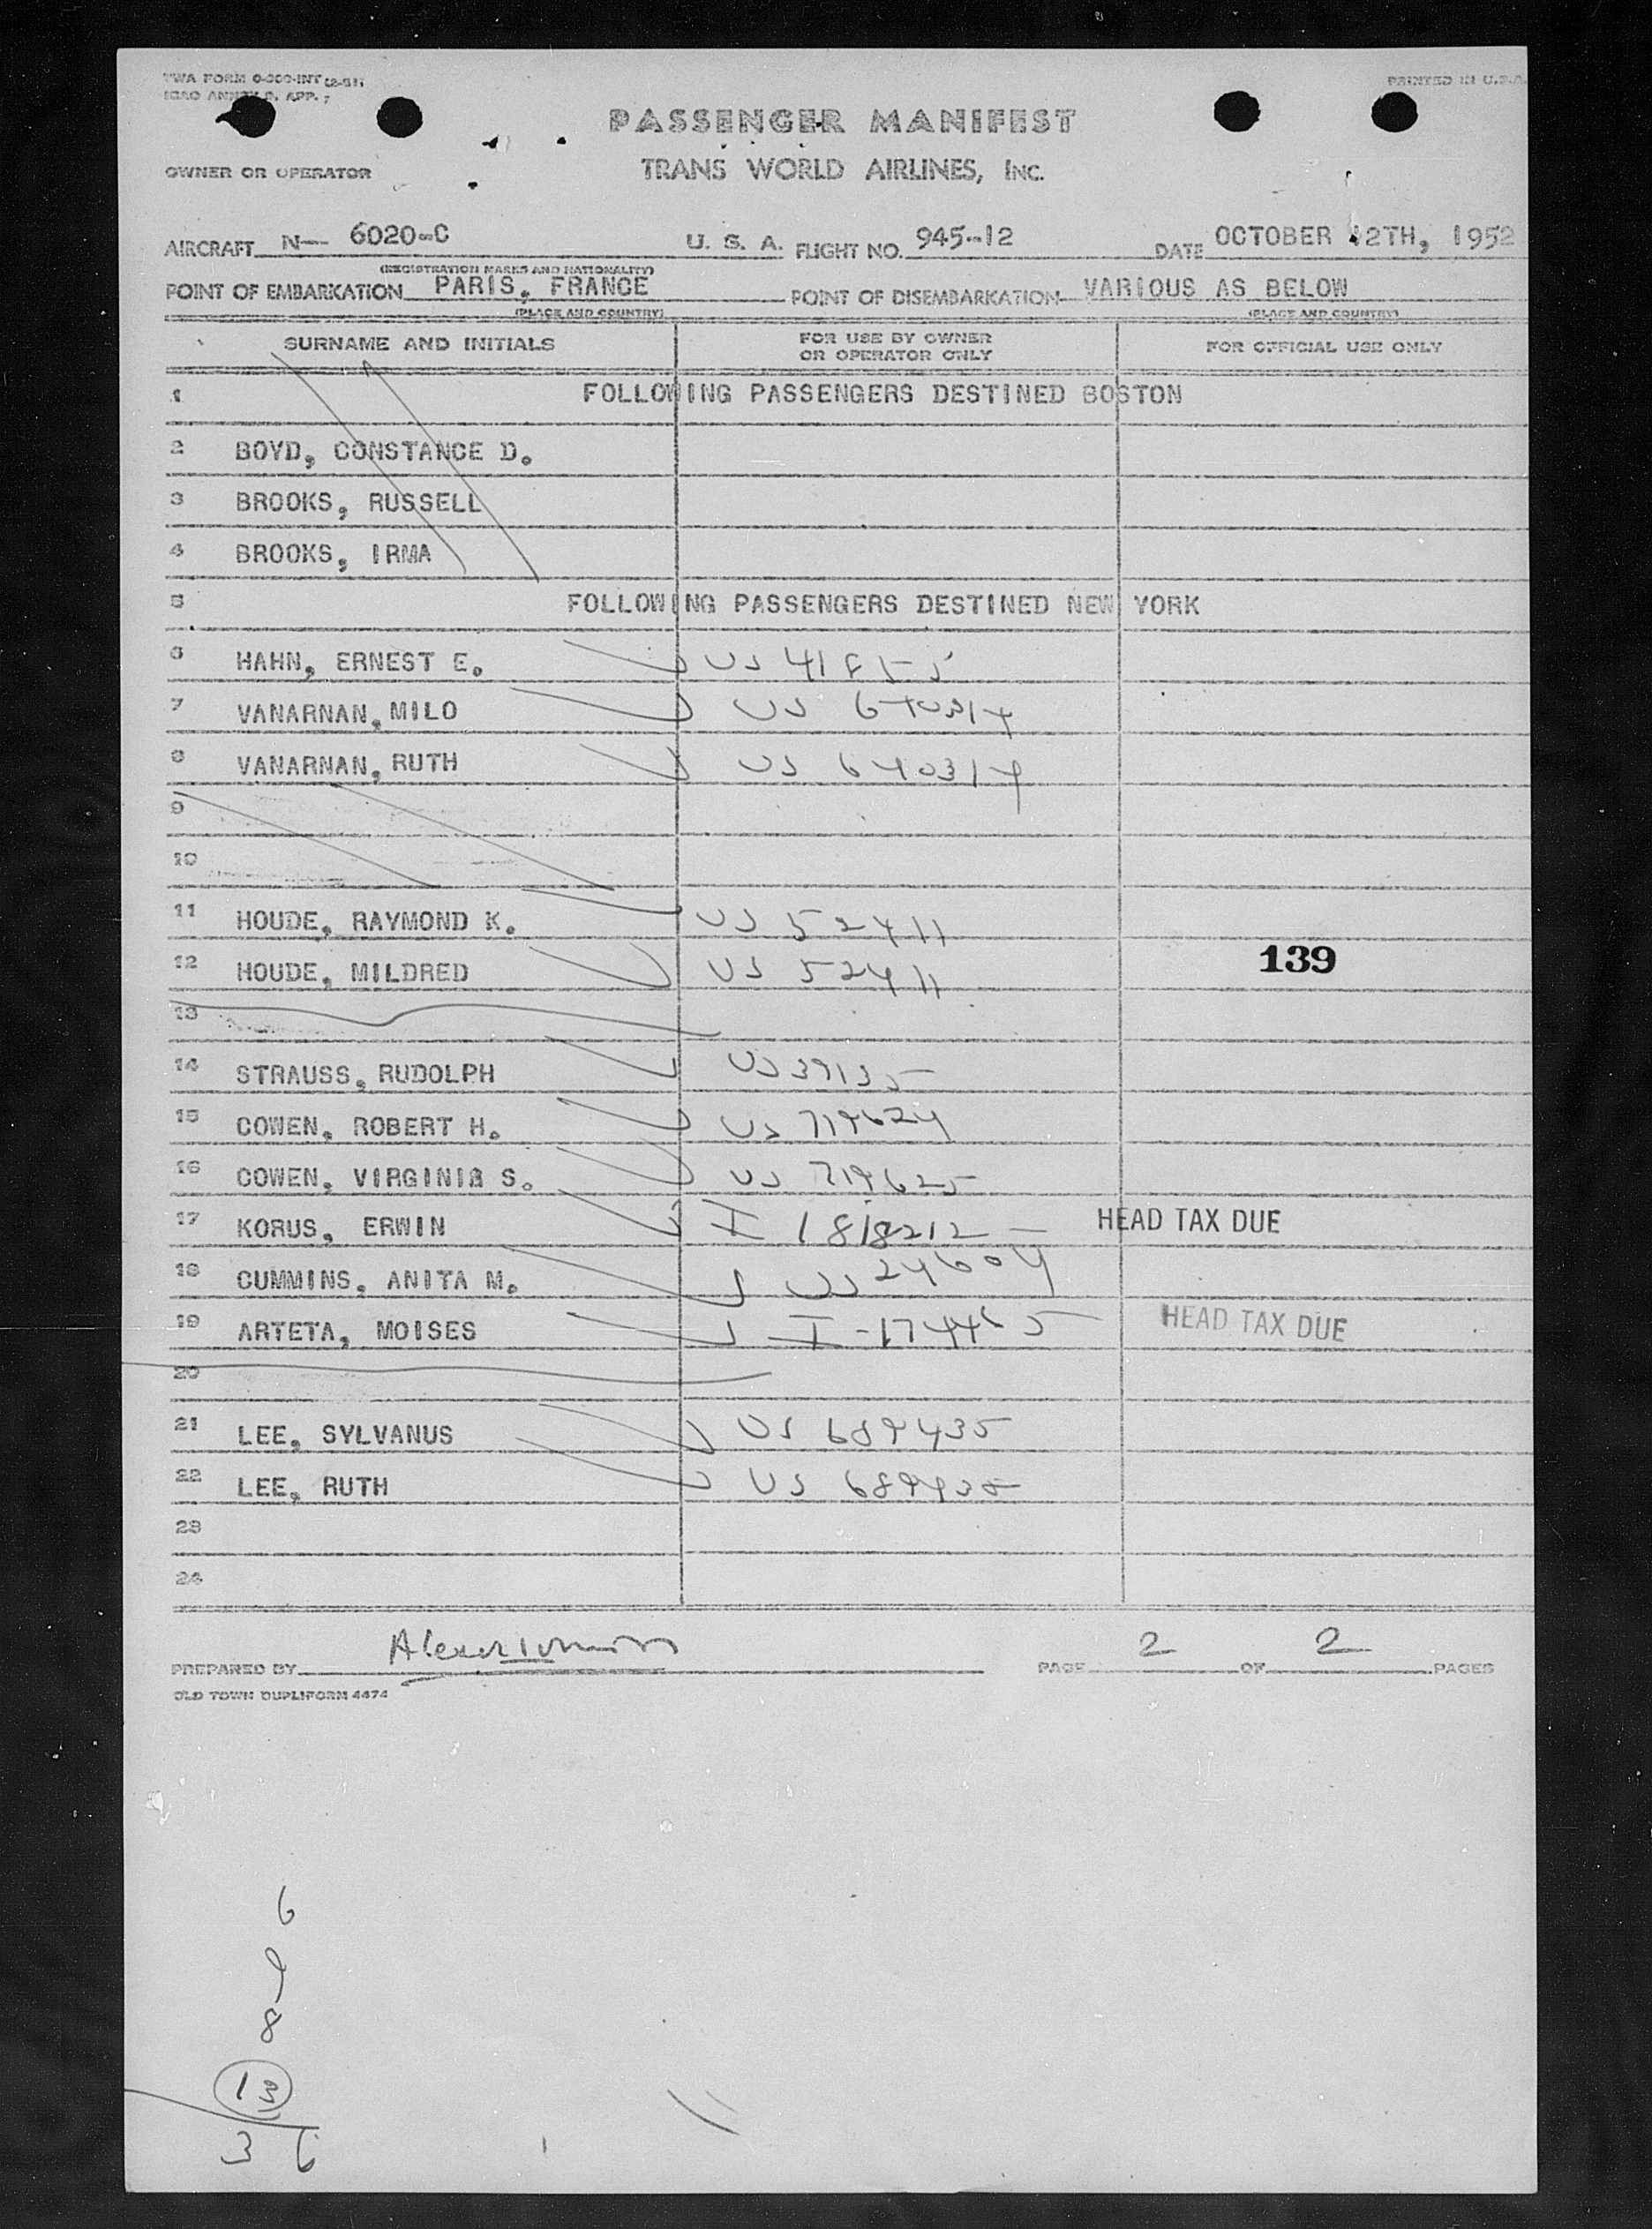 TWA FORM 0-300-INT (2-51)
ICAO ANNEX 9, APP. 7
PRINTED IN U.S.A.
PASSENGER MANIFEST
OWNER OR OPERATOR TRANS WORLD AIRLINES, INC.
AIRCRAFT N— 6020-C U. S. A. FLIGHT NO. 945-12 DATE OCTOBER 12TH, 1952
(REGISTRATION MARKS AND NATIONALITY)
POINT OF EMBARKATION PARIS, FRANCE POINT OF DISEMBARKATION VARIOUS AS BELOW
(PLACE AND COUNTRY) (PLACE AND COUNTRY)
SURNAME AND INITIALS FOR USE BY OWNER OR OPERATOR ONLY FOR OFFICIAL USE ONLY
1 FOLLOWING PASSENGERS DESTINED BOSTON
2 BOYD, CONSTANCE D.
3 BROOKS, RUSSELL
4 BROOKS, IRMA
5 FOLLOWING PASSENGERS DESTINED NEW YORK
6 HAHN, ERNEST E. US
7 VANARNAN, MILO US 640314
8 VANARNAN, RUTH US 640314
9
10
11 HOUDE, RAYMOND K. US 52411
12 HOUDE, MILDRED US 52411 139
13
14 STRAUSS, RUDOLPH US 39135
15 COWEN, ROBERT H. US 719624
16 COWEN, VIRGINIA S. US 719625
17 KORUS, ERWIN I 1818212 — HEAD TAX DUE
18 CUMMINS, ANITA M. US 24604
19 ARTETA, MOISES I-174465 HEAD TAX DUE
20
21 LEE, SYLVANUS US 689435
22 LEE, RUTH US 689435
23
24
PREPARED BY PAGE 2 OF 2 PAGES
OLD TOWN DUPLIFORM 4474
6
8
13
36